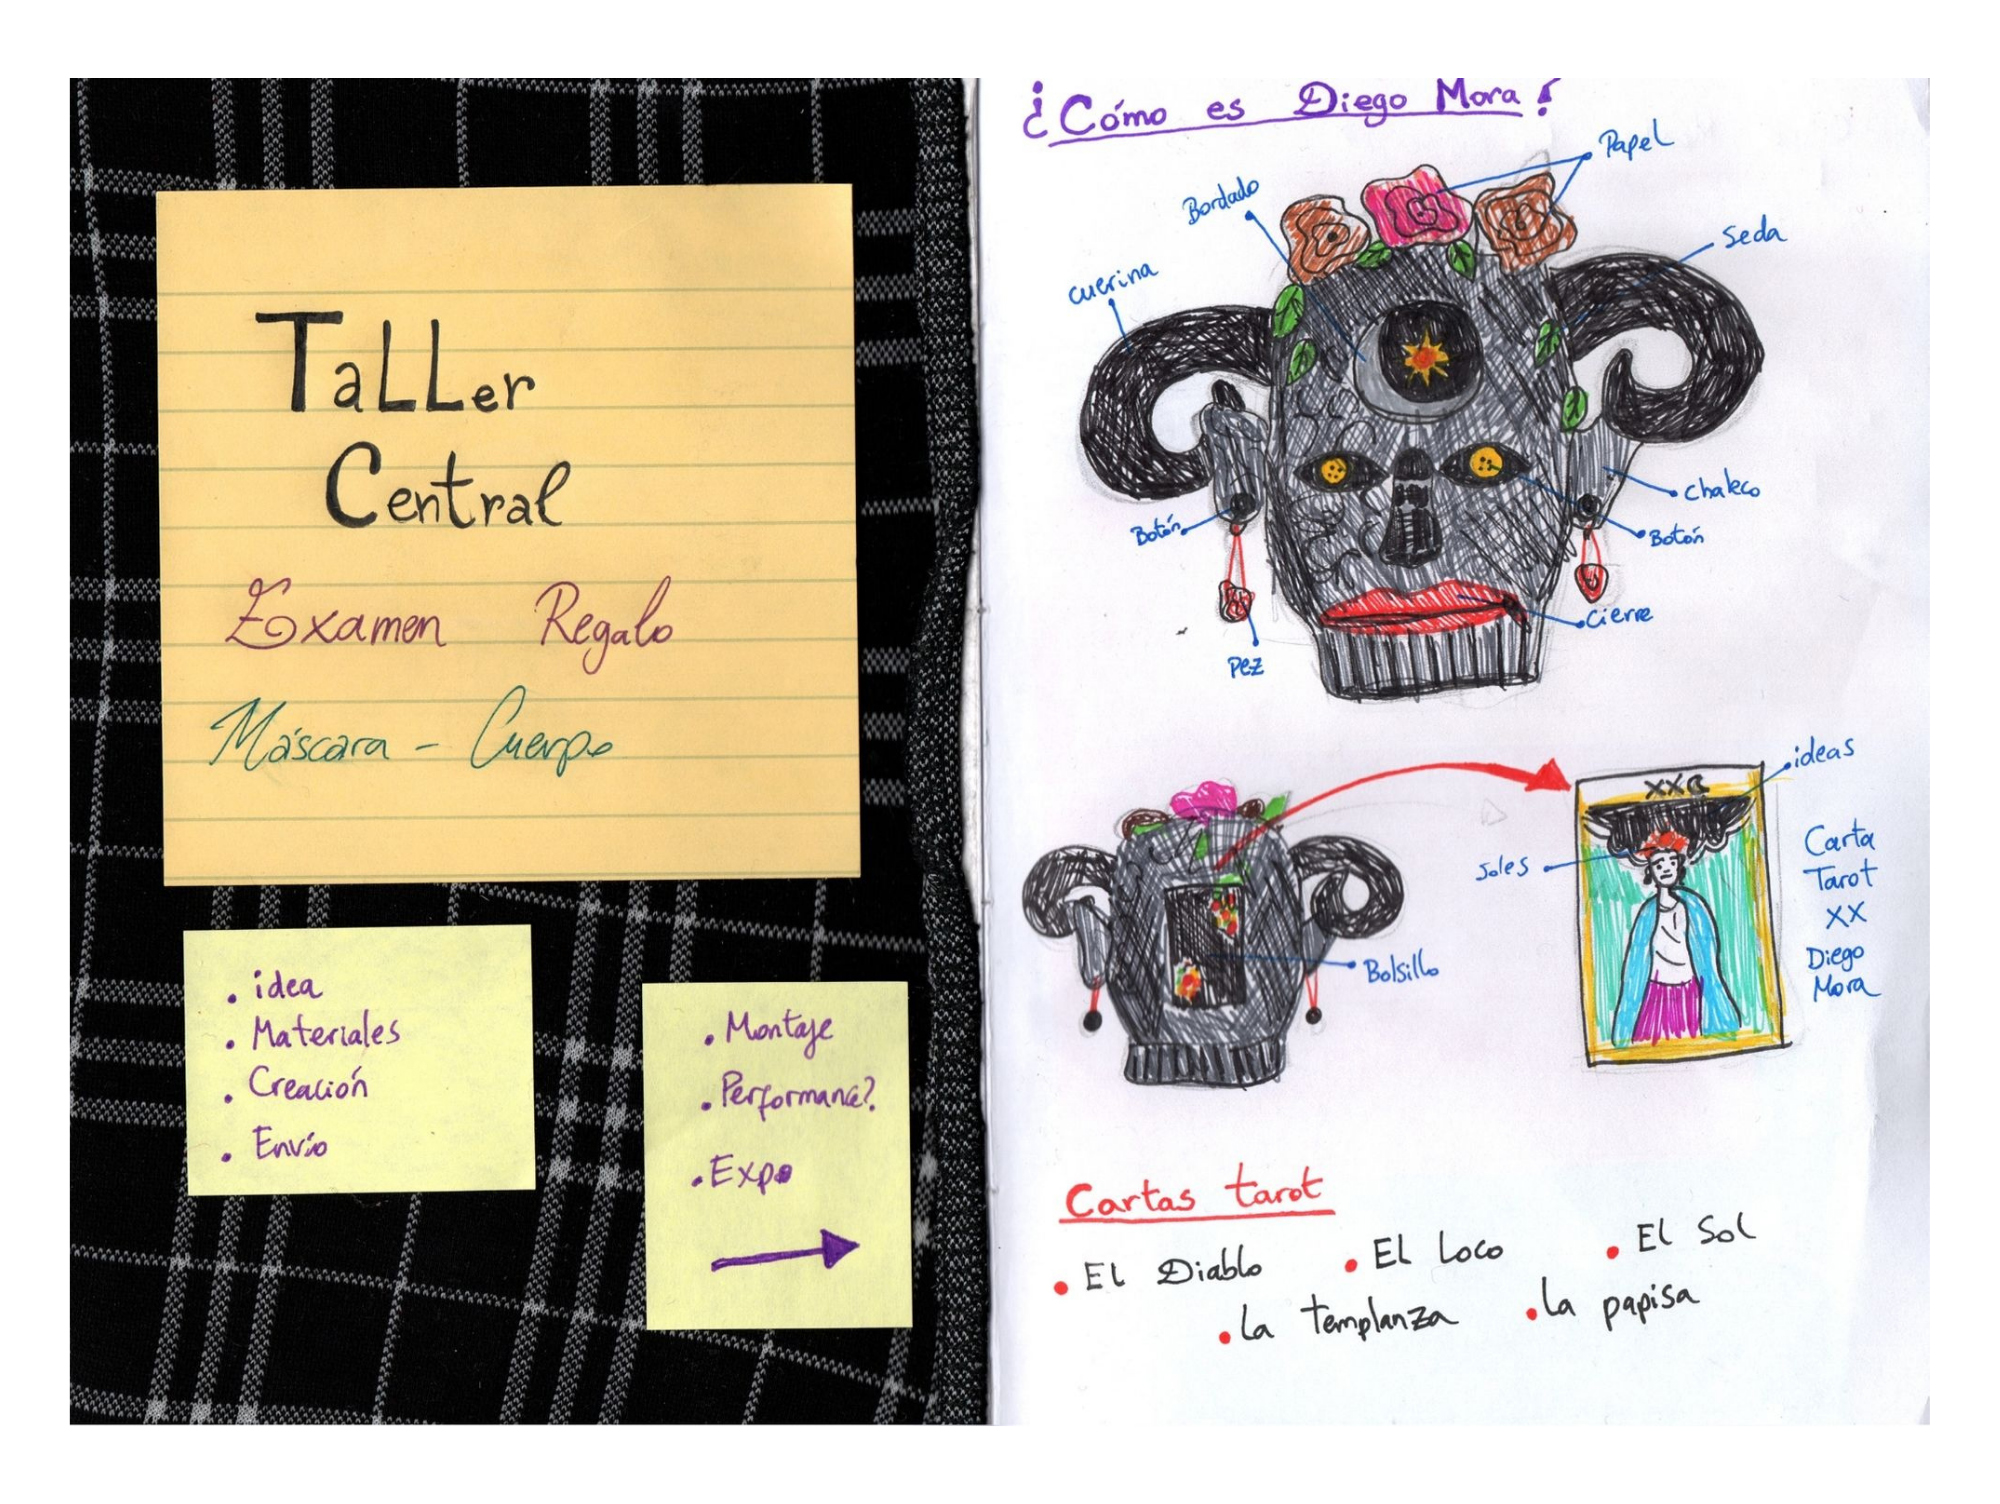 TaLLer
Central
Examen Regalo
Máscara - Cuerpo
. idea
. Materiales
. Creación
. Envío
. Montaje
. Performance?
. Expo
¿Cómo es Diego Mora?
Papel
Bordado
Seda
cuerina
chaleco
Botón
Botón
cierre
Pez
ideas
XX
soles
Carta
Tarot
XX
Diego
Mora
Bolsillo
Cartas tarot
. EL Diablo
. EL Loco
. EL Sol
. La templanza
. La papisa